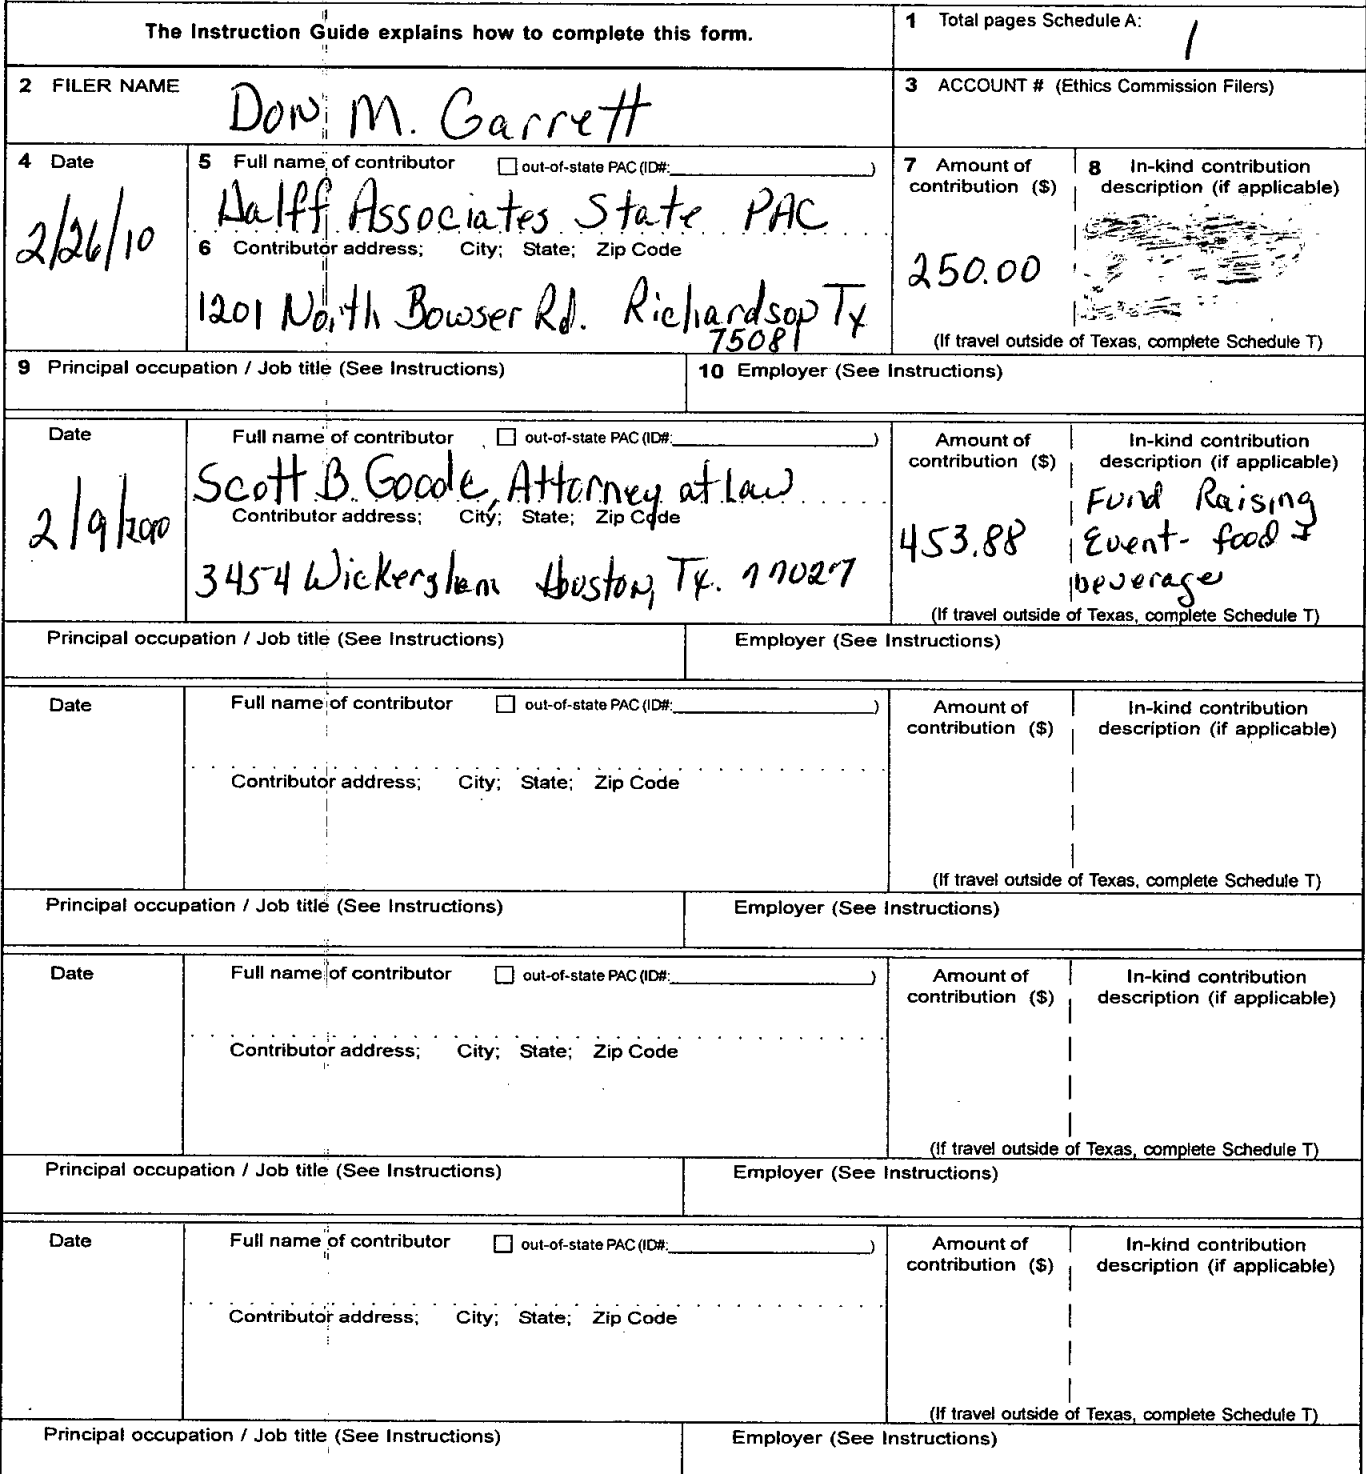 The Instruction Guide explains how to complete this form.
1 Total pages Schedule A:
1
2 FILER NAME
Don M. Garrett
3 ACCOUNT # (Ethics Commission Filers)
4 Date
2/26/10
5 Full name of contributor
out-of-state PAC (ID#: )
Halff Associates State PAC
6 Contributor address; City; State; Zip Code
1201 North Bowser Rd. Richardson Tx
75081
7 Amount of
contribution ($)
250.00
8 In-kind contribution
description (if applicable)
(If travel outside of Texas, complete Schedule T)
9 Principal occupation / Job title (See Instructions)
10 Employer (See Instructions)
Date
2/9/2010
Full name of contributor
out-of-state PAC (ID#: )
Scott B. Goode, Attorney at Law
Contributor address; City; State; Zip Code
3454 Wickersham Houston, Tx. 77027
Amount of
contribution ($)
453.88
In-kind contribution
description (if applicable)
Fund Raising
Event- food +
beverage
(If travel outside of Texas, complete Schedule T)
Principal occupation / Job title (See Instructions)
Employer (See Instructions)
Date
Full name of contributor
out-of-state PAC (ID#: )
Contributor address; City; State; Zip Code
Amount of
contribution ($)
In-kind contribution
description (if applicable)
(If travel outside of Texas, complete Schedule T)
Principal occupation / Job title (See Instructions)
Employer (See Instructions)
Date
Full name of contributor
out-of-state PAC (ID#: )
Contributor address; City; State; Zip Code
Amount of
contribution ($)
In-kind contribution
description (if applicable)
(If travel outside of Texas, complete Schedule T)
Principal occupation / Job title (See Instructions)
Employer (See Instructions)
Date
Full name of contributor
out-of-state PAC (ID#: )
Contributor address; City; State; Zip Code
Amount of
contribution ($)
In-kind contribution
description (if applicable)
(If travel outside of Texas, complete Schedule T)
Principal occupation / Job title (See Instructions)
Employer (See Instructions)